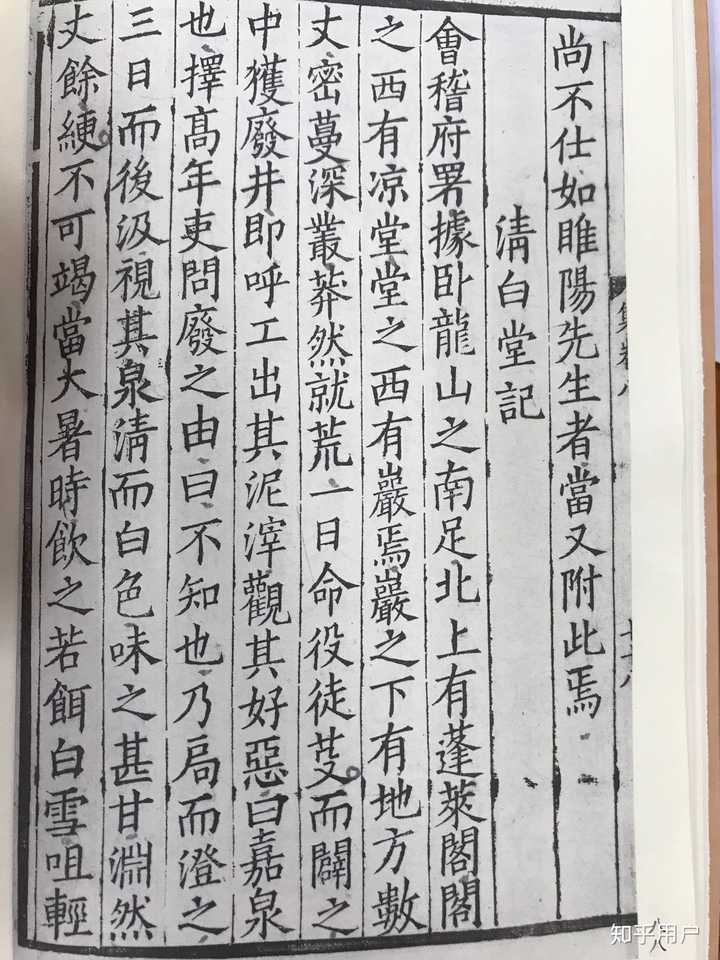 尚不仕如睢陽先生者當又附此焉
清白堂記
會稽府署據卧龍山之南足北上有蓬萊閣閣
之西有凉堂堂之西有巖焉巖之下有地方數
丈密蔓深叢莽然就荒一日命役徒芟而闢之
中獲廢井即呼工出其泥滓觀其好惡曰嘉泉
也擇高年吏問廢之由曰不知也乃扄而澄之
三日而後汲視其泉清而白色味之甚甘淵然
丈餘綆不可竭當大暑時飲之若餌白雪咀輕
八八
知乎用户